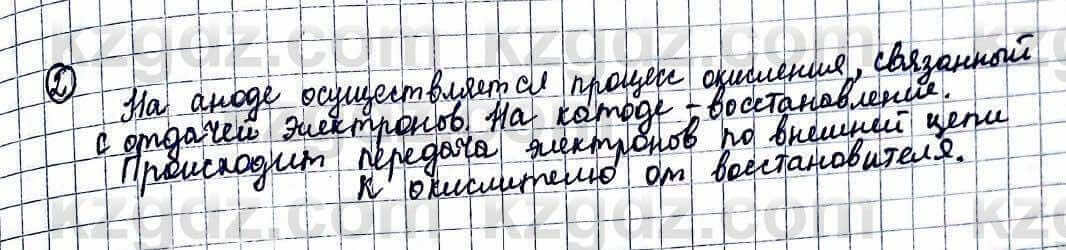 2) На аноде осуществляется процесс окисления, связанный
с отдачей электронов. На катоде - восстановление.
Происходит передача электронов по внешней цепи
к окислителю от восстановителя.
kzgdz.com kzgdz.com kzgdz.com
kzgdz.com kzgdz.com kzgdz.com